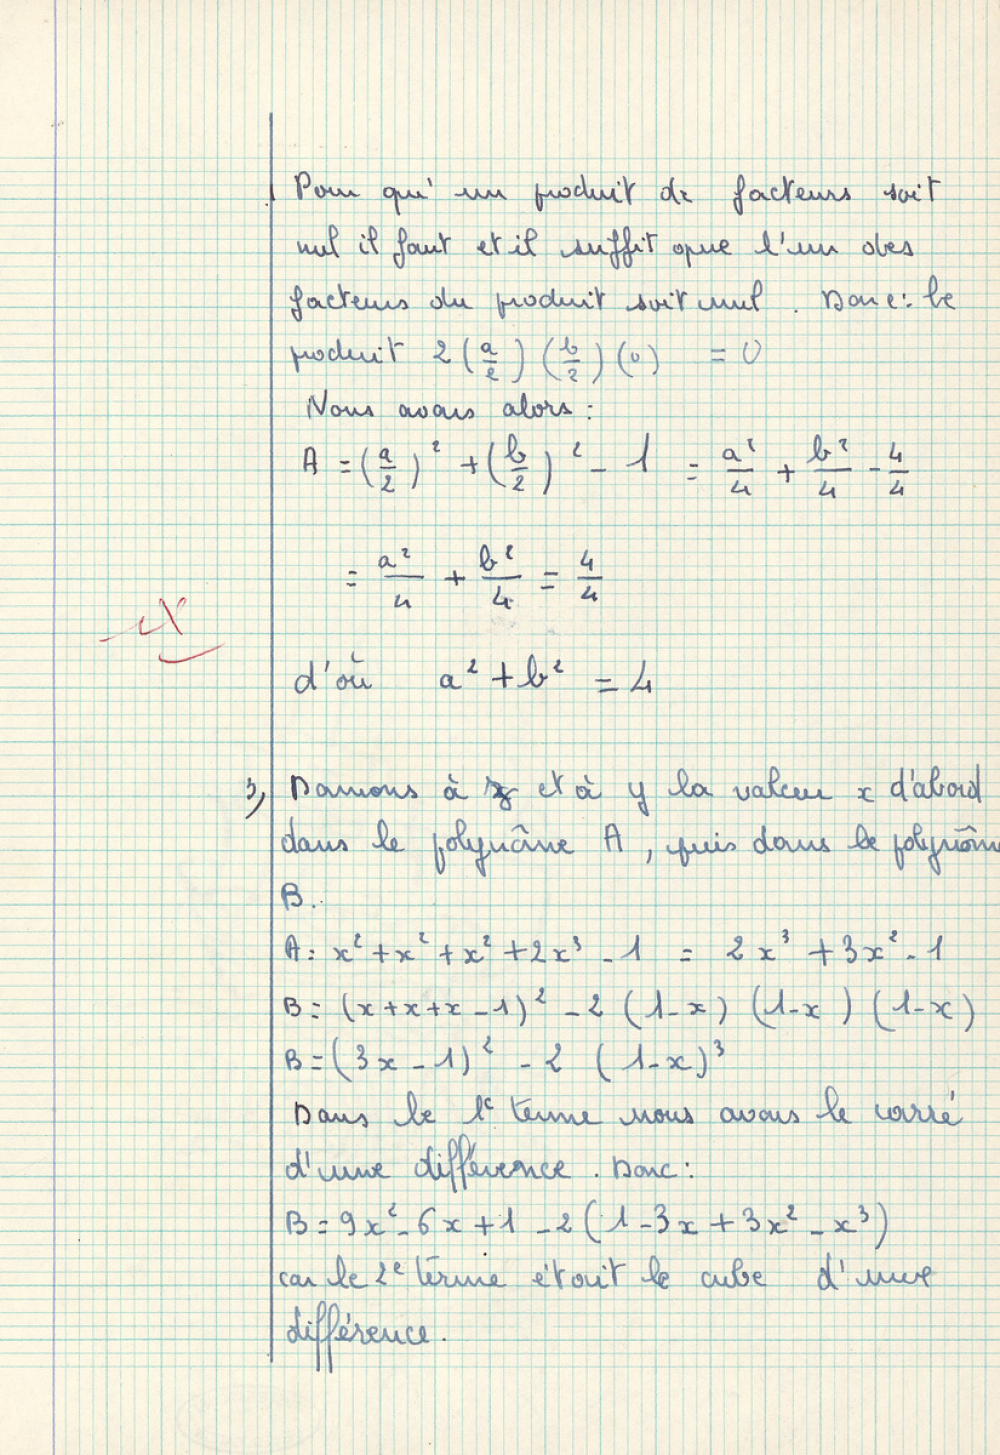 Pour qu'un produit de facteurs soit
nul il faut et il suffit que l'un des
facteurs du produit soit nul. Donc: le
produit 2 (a/2) (b/2) (0) = 0
Nous avons alors :
A = (a/2)² + (b/2)² - 1 = a²/4 + b²/4 - 4/4
= a²/4 + b²/4 = 4/4
d'où a² + b² = 4
3) Donnons à z et à y la valeur x d'abord
dans le polynôme A, puis dans le polynôme
B.
A = x² + x² + x² + 2x³ - 1 = 2x³ + 3x² - 1
B = (x + x + x - 1)² - 2 (1 - x) (1 - x) (1 - x)
B = (3x - 1)² - 2 (1 - x)³
Dans le 1e terme nous avons le carré
d'une différence. Donc :
B = 9x² - 6x + 1 - 2 (1 - 3x + 3x² - x³)
car le 2e terme étoit le cube d'une
différence.